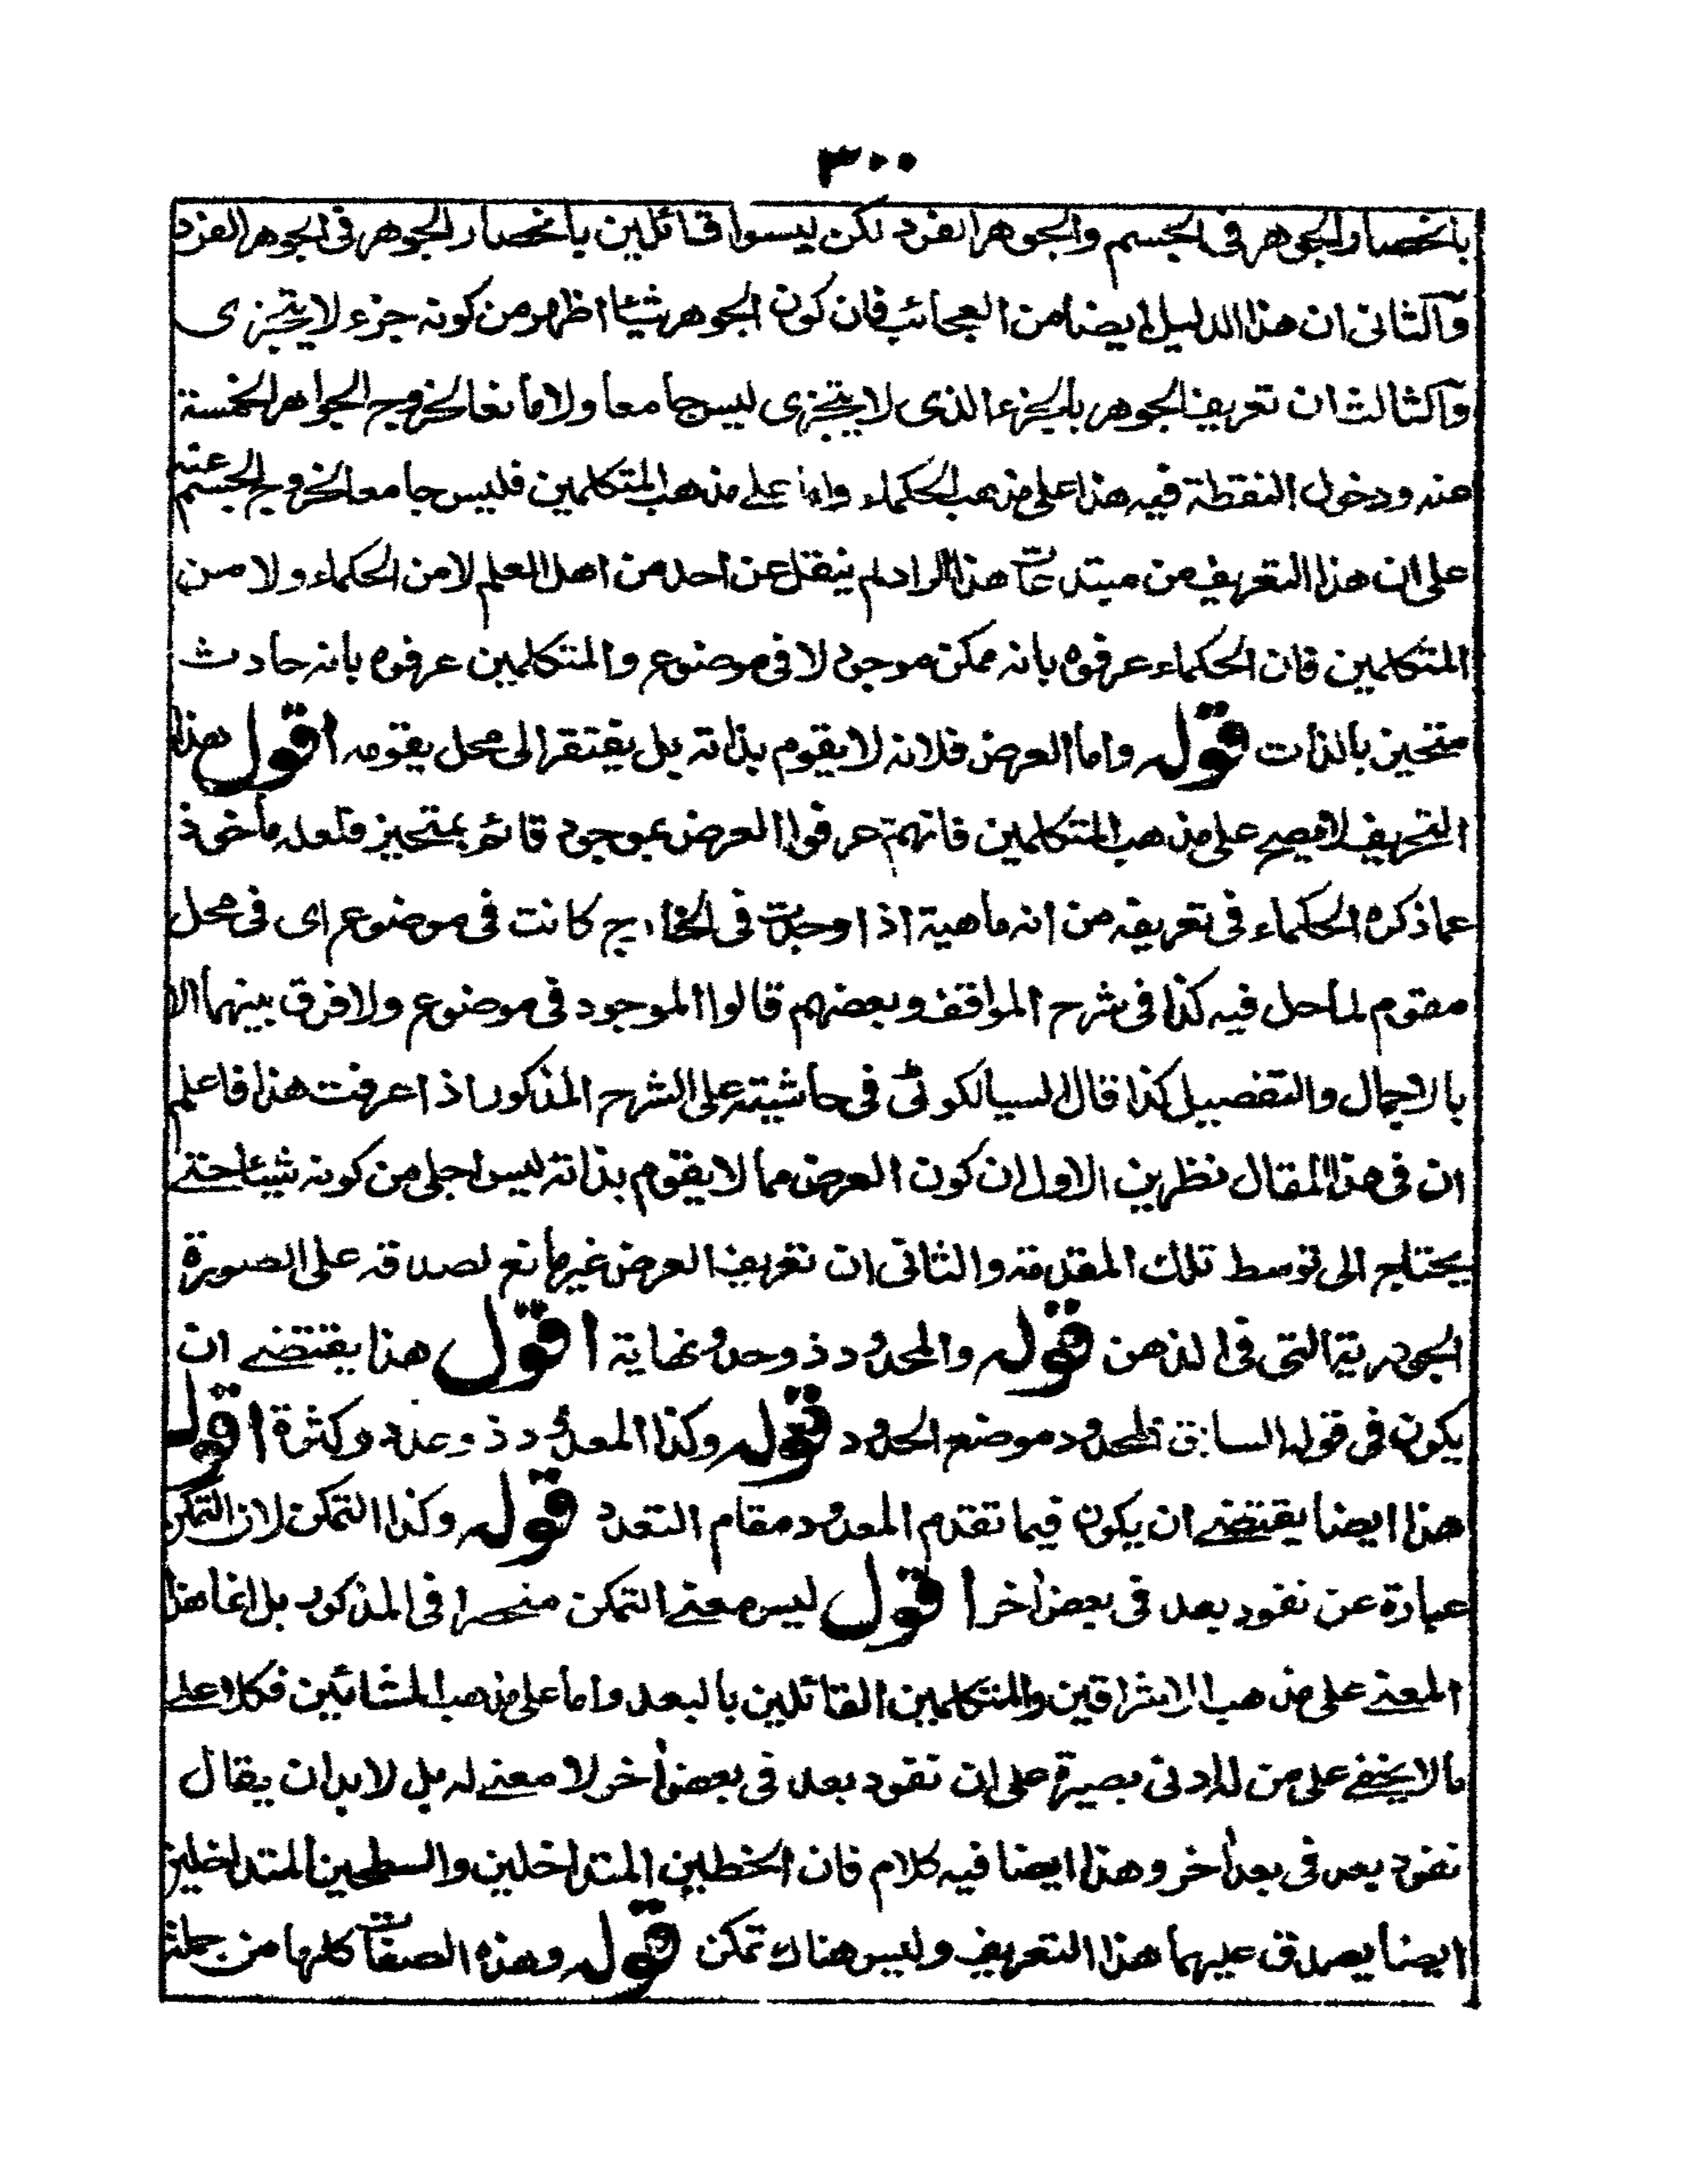 ٣٠٠
بانحصار الجوهر فى الجسم والجوهر الفرد لكن ليسوا قائلين بانحصار الجوهر فى الجوهر الفرد
والثانى ان هذا الدليل ايضا من العجائب فان كون الجوهر شيئا اظهر من كونه جزء لا يتجزى
والثالث ان تعريف الجوهر بالجزء الذى لا يتجزى ليس جامعا ولا مانعا لخروج الجواهر الخمسة
عنه ودخول النقطة فيه هذا على مذهب الحكماء واما على مذهب المتكلمين فليس جامعا لخروج الجسم عنه
على ان هذا التعريف من مبتدعات هذا الراد لم ينقل عن احد من اهل العلم لا من الحكماء ولا من
المتكلمين فان الحكماء عرفوه بانه ممكن موجود لا فى موضوع والمتكلمين عرفوه بانه حادث
متحيز بالذات قوله واما العرض فلانه لا يقوم بذاته بل يفتقر الى محل يقومه اقول هذا
التعريف لا يصح على مذهب المتكلمين فانهم عرفوا العرض بموجود قائم بمتحيز فلعله ماخوذ
عما ذكره الحكماء فى تعريفه من انه ماهية اذا وجدت فى الخارج كانت فى موضوع اى فى محل
مقوم لما حل فيه كذا فى شرح المواقف وبعضهم قالوا الموجود فى موضوع ولا فرق بينهما الا
بالاجمال والتفصيل كذا قال السيالكوٹى فى حاشيته على الشرح المذكور اذا عرفت هذا فاعلم
ان فى هذا المقال نظرين الاول ان كون العرض مما لا يقوم بذاته ليس اجلى من كونه شيئا حتى
يحتاج الى توسط تلك المقدمة والثانى ان تعريف العرض غير مانع لصدقه على الصورة
الجوهرية التى فى الذهن قوله والمحدود ذو حد ونهاية اقول هذا يقتضى ان
يكون فى قوله السابق المحدود موضع الحدود قوله وكذا المعدود ذو عدد وكثرة اقول
هذا ايضا يقتضى ان يكون فيما تقدم المعدود مقام التعدد قوله وكذا التمكن لان التمكن
عبارة عن نفوذ بعد فى بعض أخر اقول ليس معنى التمكن منحصرا فى المذكور بل انما هذا
المعنى على مذهب الاشراقين والمتكلمين القائلين بالبعد واما على مذهب المشائين فكلا على
مالا يخفى على من له ادنى بصيرة على ان نفوذ بعد فى بعض أخر لا معنى له بل لابد ان يقال
نفوذ بعد فى بعد أخر وهذا ايضا فيه كلام فان الخطين المتداخلين والسطحين المتداخلين
ايضا يصدق عليهما هذا التعريف وليس هناك تمكن قوله وهذه الصفات كلها من جملة